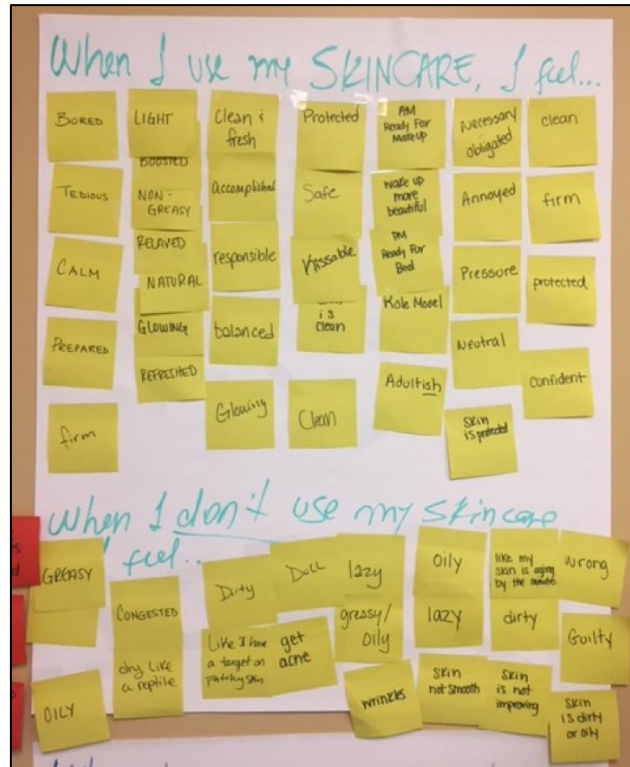 When I use my SKINCARE, I feel...
BORED
TEDIOUS
CALM
PREPARED
firm
LIGHT
BOOSTED
NON-
GREASY
RELAXED
NATURAL
GLOWING
REFRESHED
Clean &
fresh
accomplished
responsible
balanced
Glowing
Protected
Safe
Kissable
is
clean
Clean
AM
Ready For
Makeup
wake up
more
beautiful
PM
Ready For
Bed
Role Model
Adultish
Necessary
obligated
Annoyed
Pressure
Neutral
skin
is protected
clean
firm
protected
confident
When I don't use my skincare
I feel...
GREASY
OILY
CONGESTED
dry like
a reptile
Dirty
Like I have
a target on
patchy skin
DULL
get
acne
lazy
greasy/
oily
wrinkles
OILY
lazy
skin
not smooth
like my
skin is aging
by the minute
dirty
skin
is not
improving
wrong
Guilty
skin
is dirty
or oily